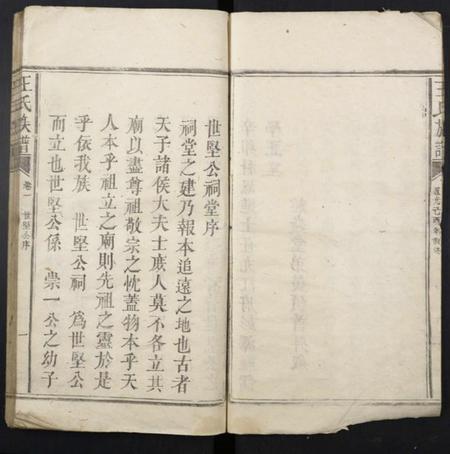 世堅公祠堂序
祠堂之建乃報本追遠之地也古者
天子諸侯大夫士庶人莫不各立其
廟以盡尊祖敬宗之忱蓋物本乎天
人本乎祖立之廟則先祖之靈於是
乎依我族 世堅公祠 為世堅公
而立也世堅公係 崇一公之幼子
王氏族譜
卷一 世堅公序
一
王氏族譜
道光己酉年